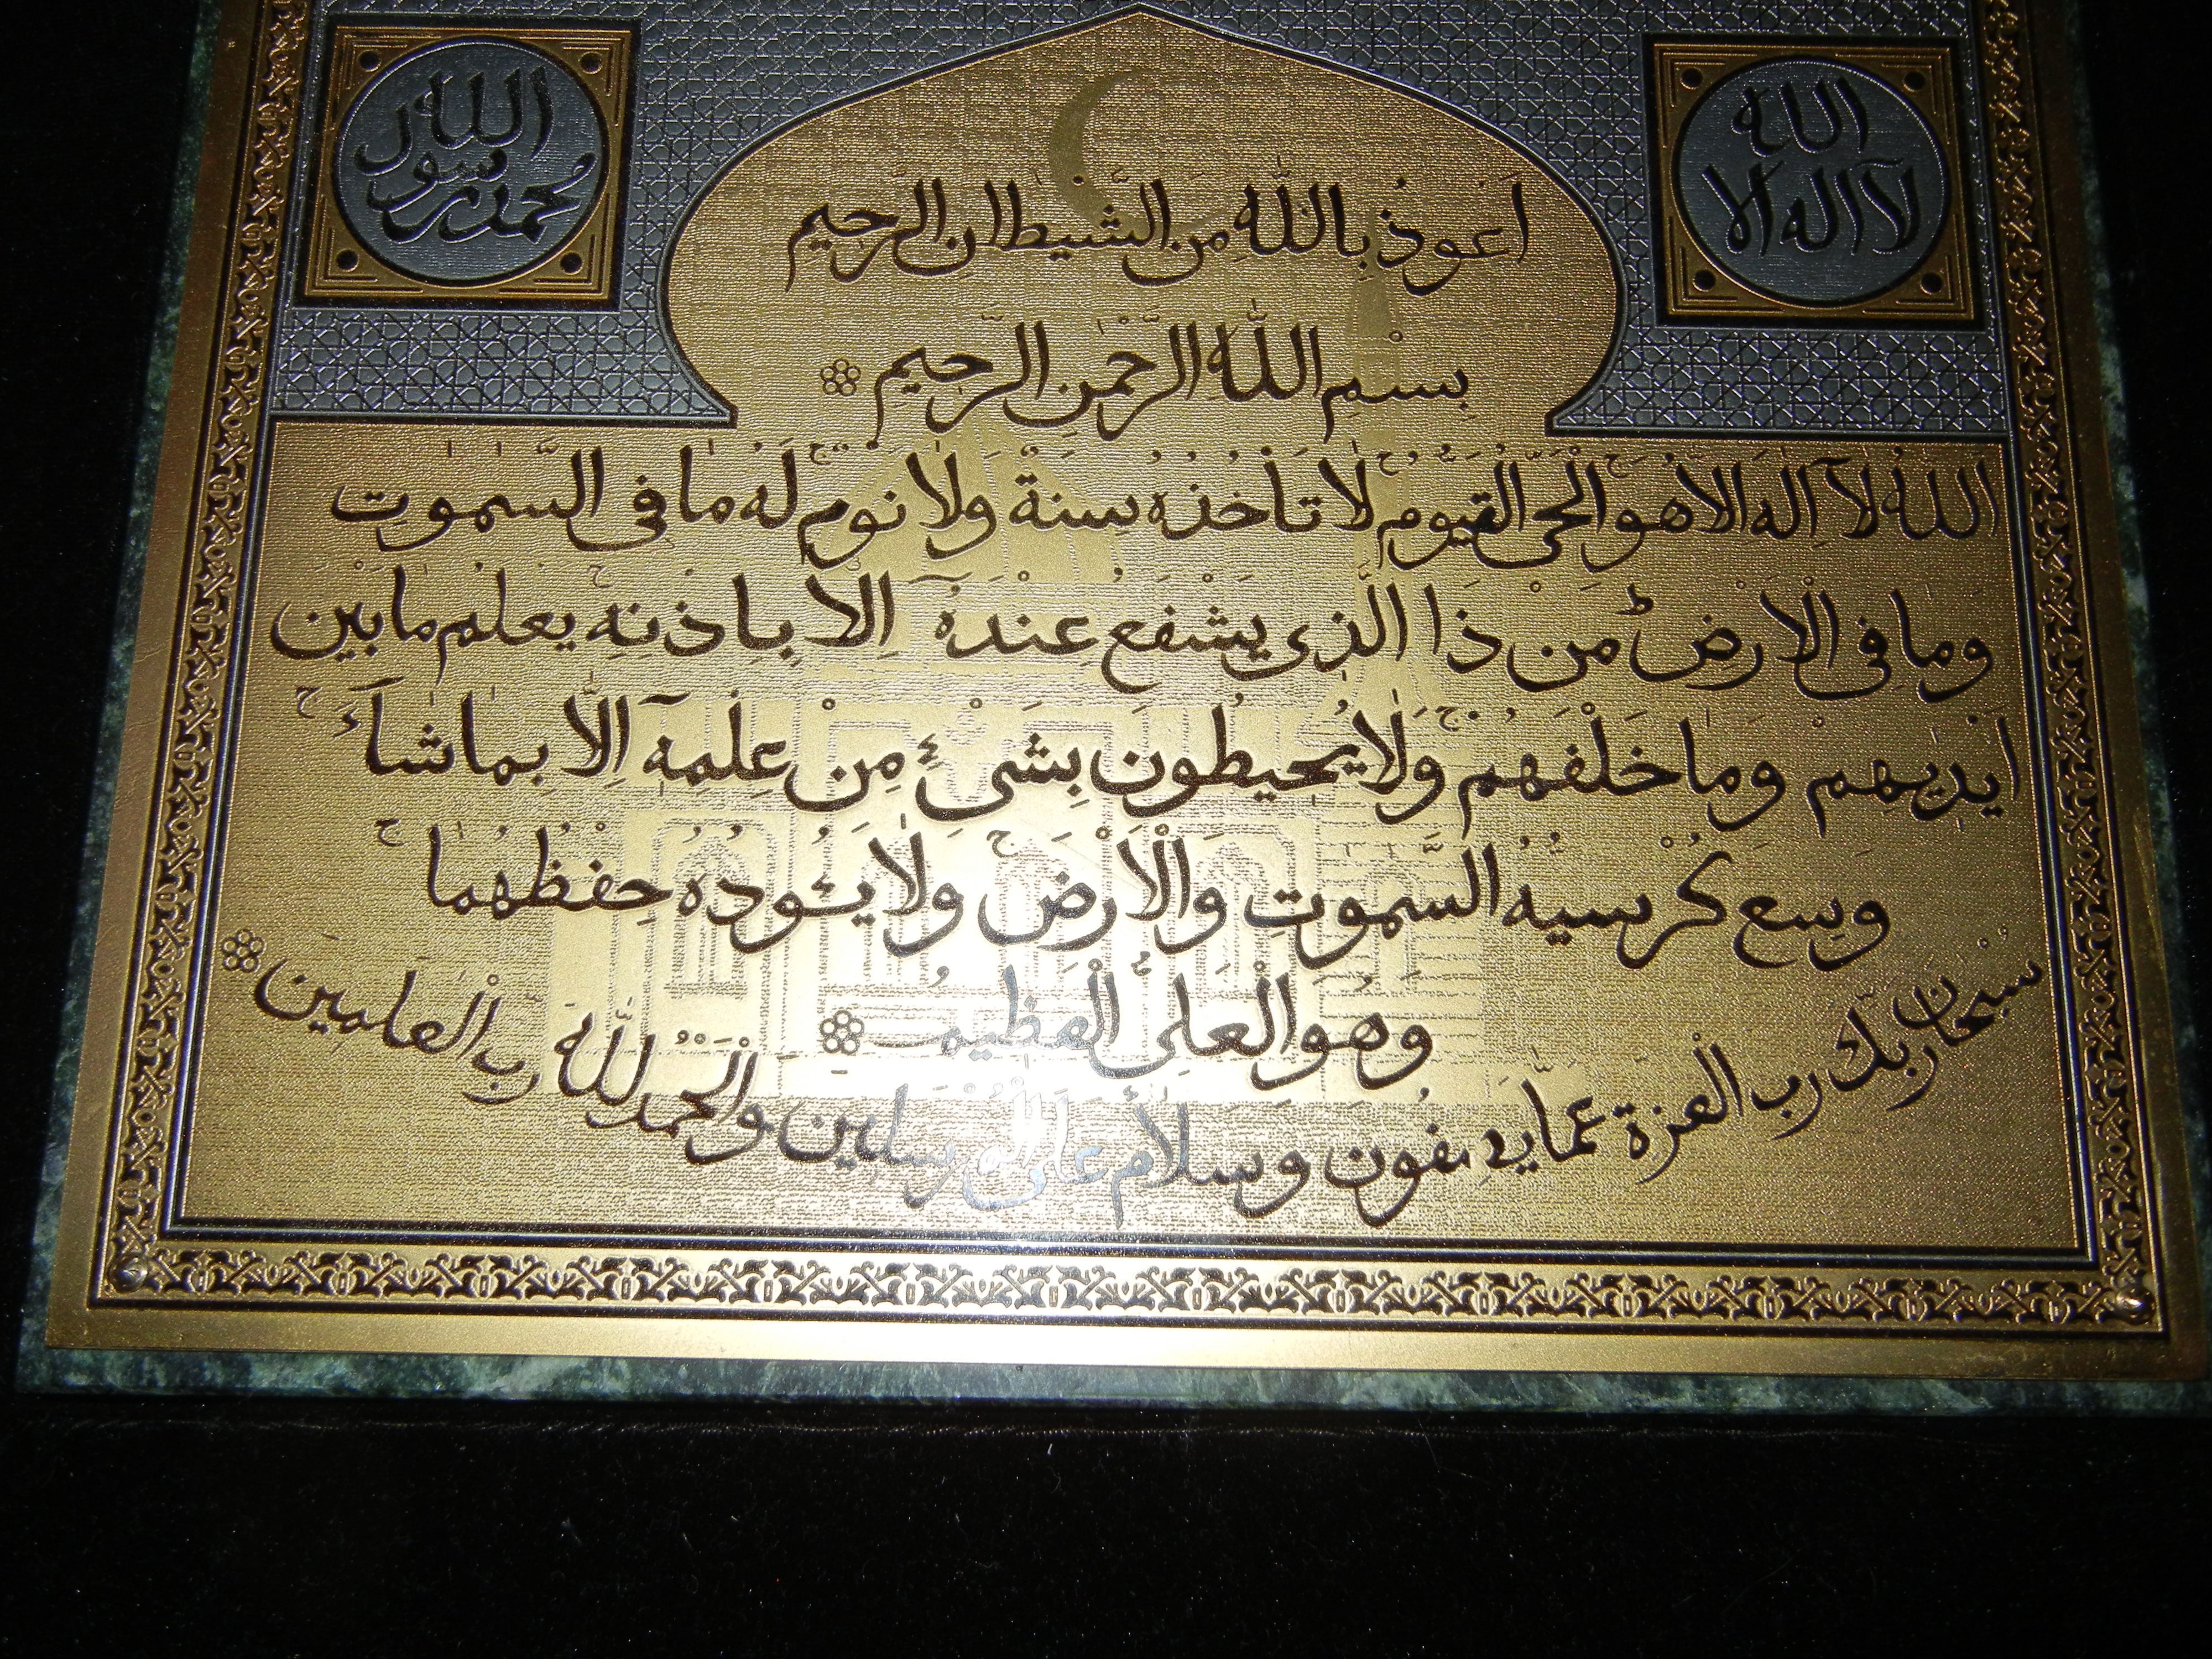 الله
لآ اله الا
محمد رسول
الله
اعوذ بالله من الشيطان الرحيم
بسم الله الرحمن الرحيم
الله لآ اله الا هو الحي القيوم لا تأخذه سنة ولا نوم له ما فى السموت
وما فى الارض من ذا الذى يشفع عنده الا باذنه يعلم ما بين
ايديهم وما خلفهم ولا يحيطون بشئ من علمه الا بما شآء
وسع كرسيه السموت والارض ولا يئوده حفظهما
وهو العلى العظيم
سبحان ربك رب العزة عما يصفون وسلام على المرسلين والحمد لله رب العلمين